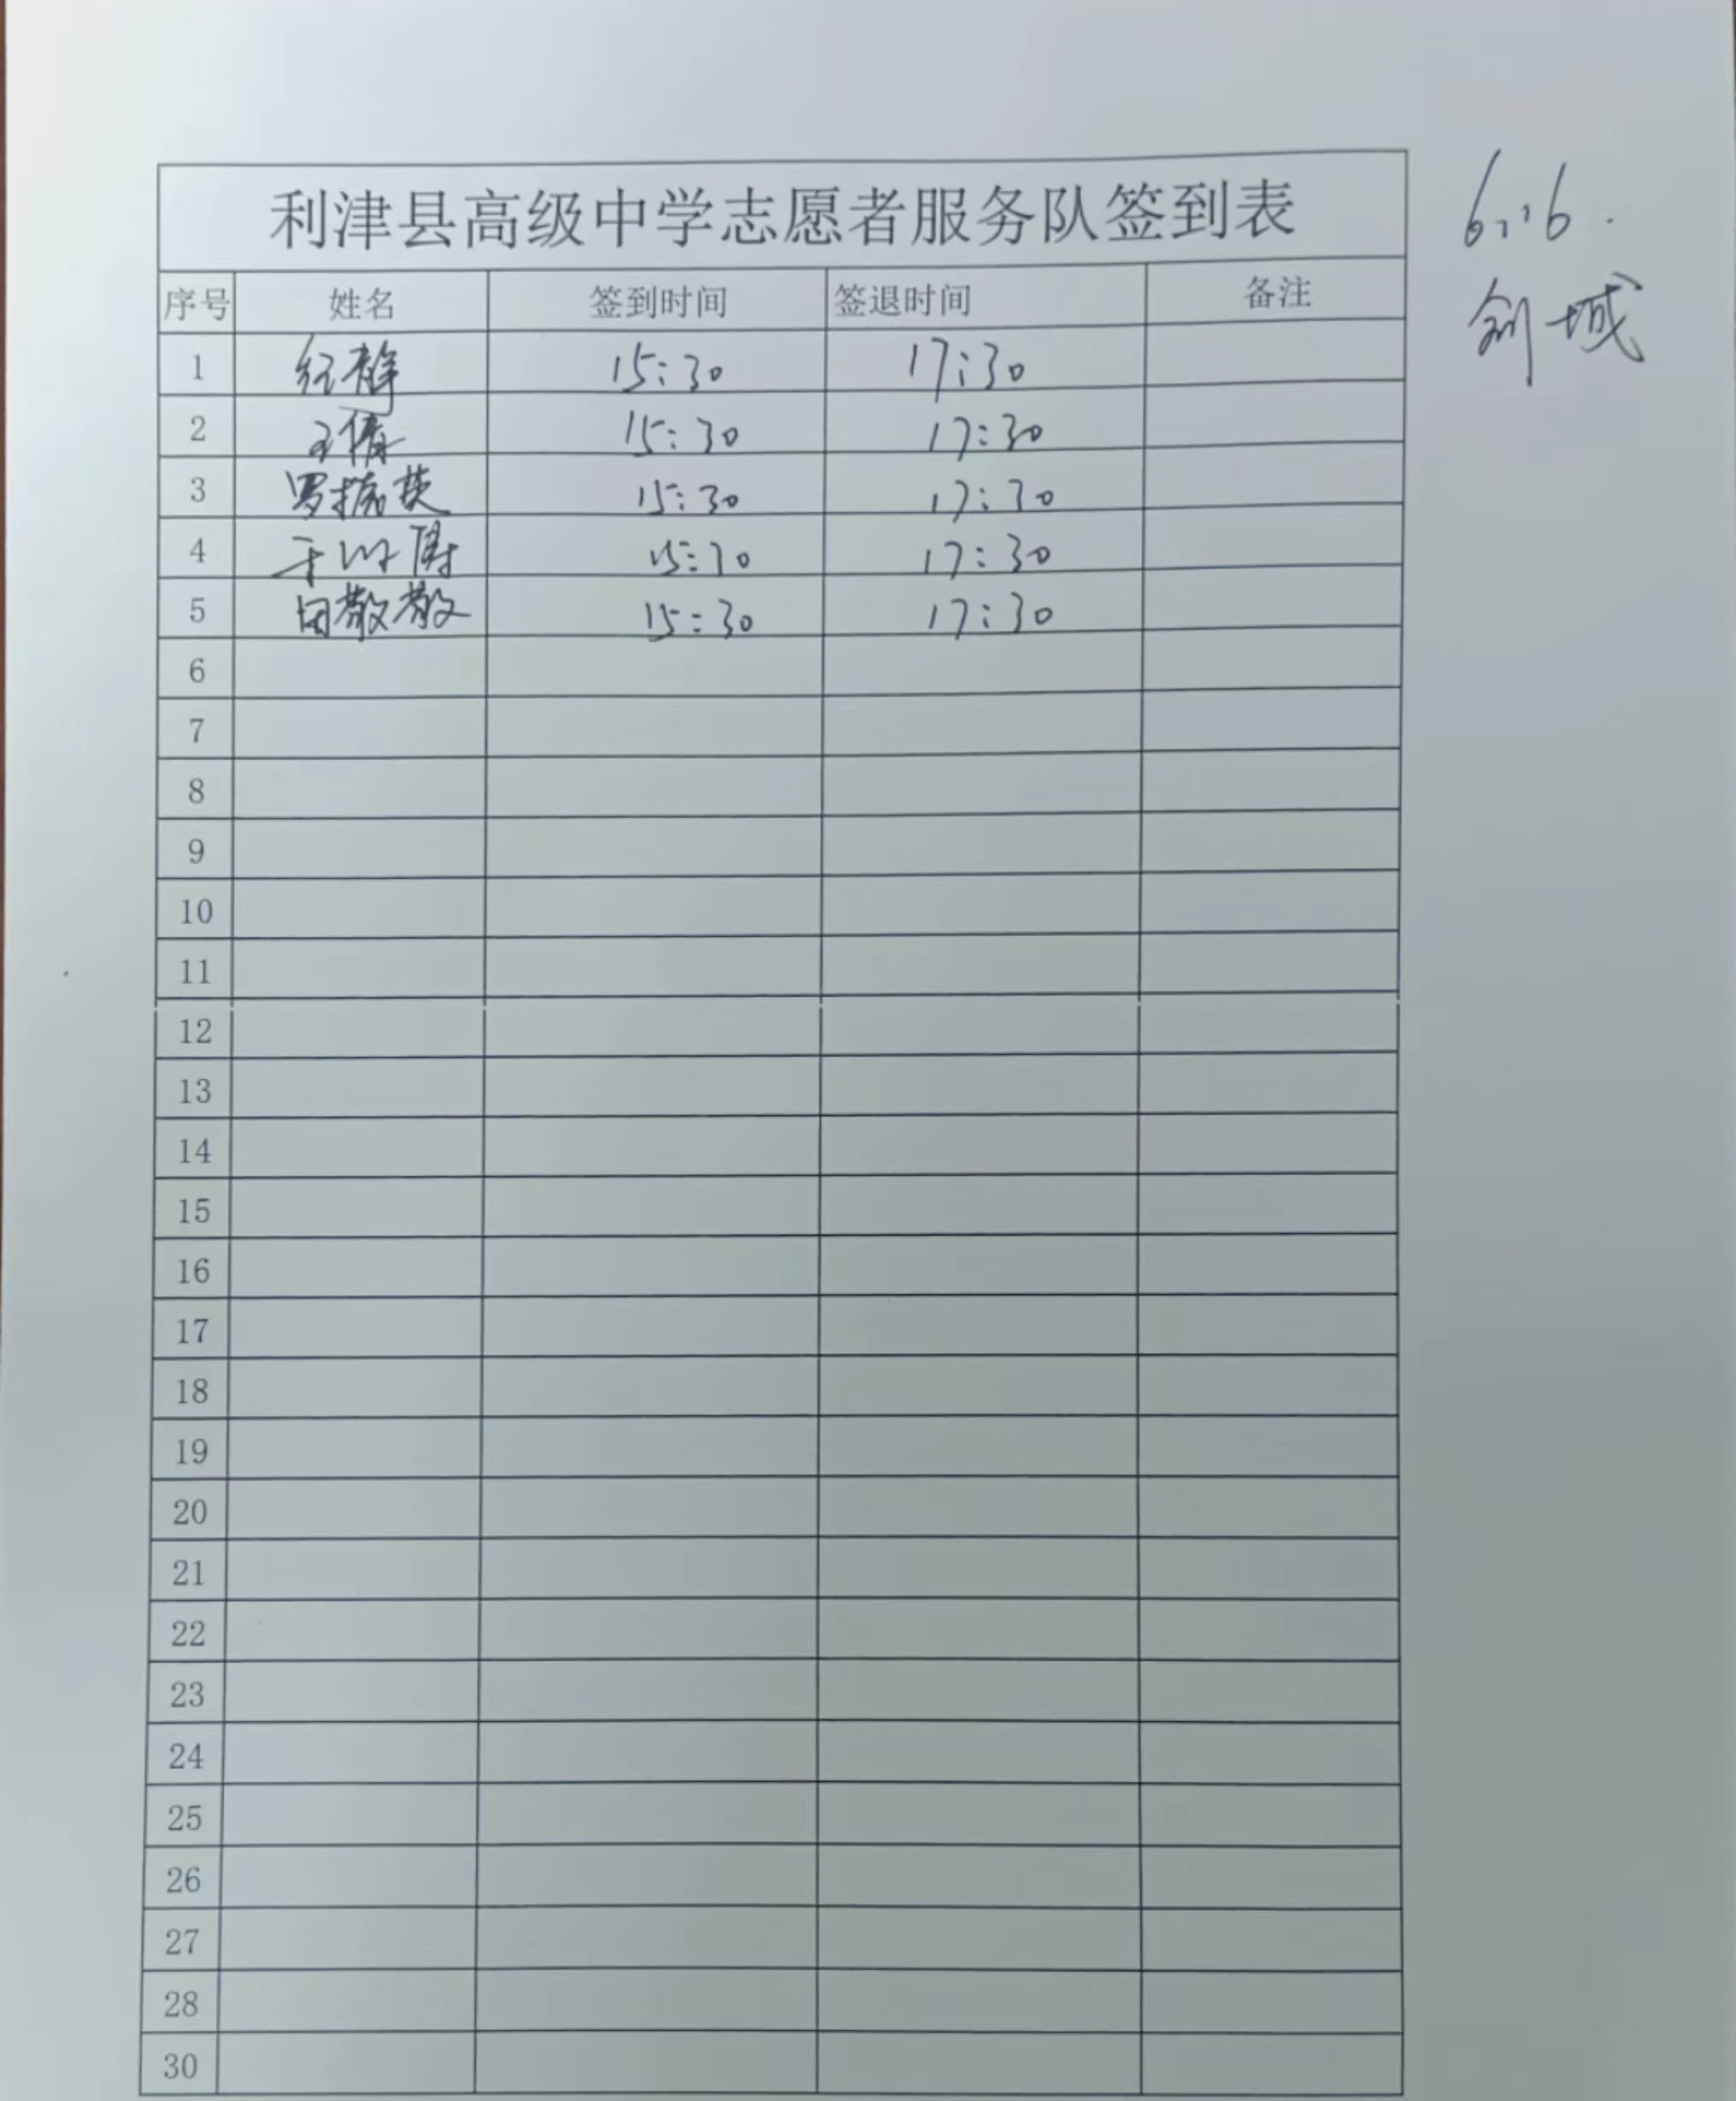 利津县高级中学志愿者服务队签到表
6.16.
创城
序号 姓名 签到时间 签退时间 备注
1 纪静 15:30 17:30
2 王倩 15:30 17:30
3 罗振英 15:30 17:30
4 于 15:30 17:30
5 田散散 15:30 17:30
6
7
8
9
10
11
12
13
14
15
16
17
18
19
20
21
22
23
24
25
26
27
28
30